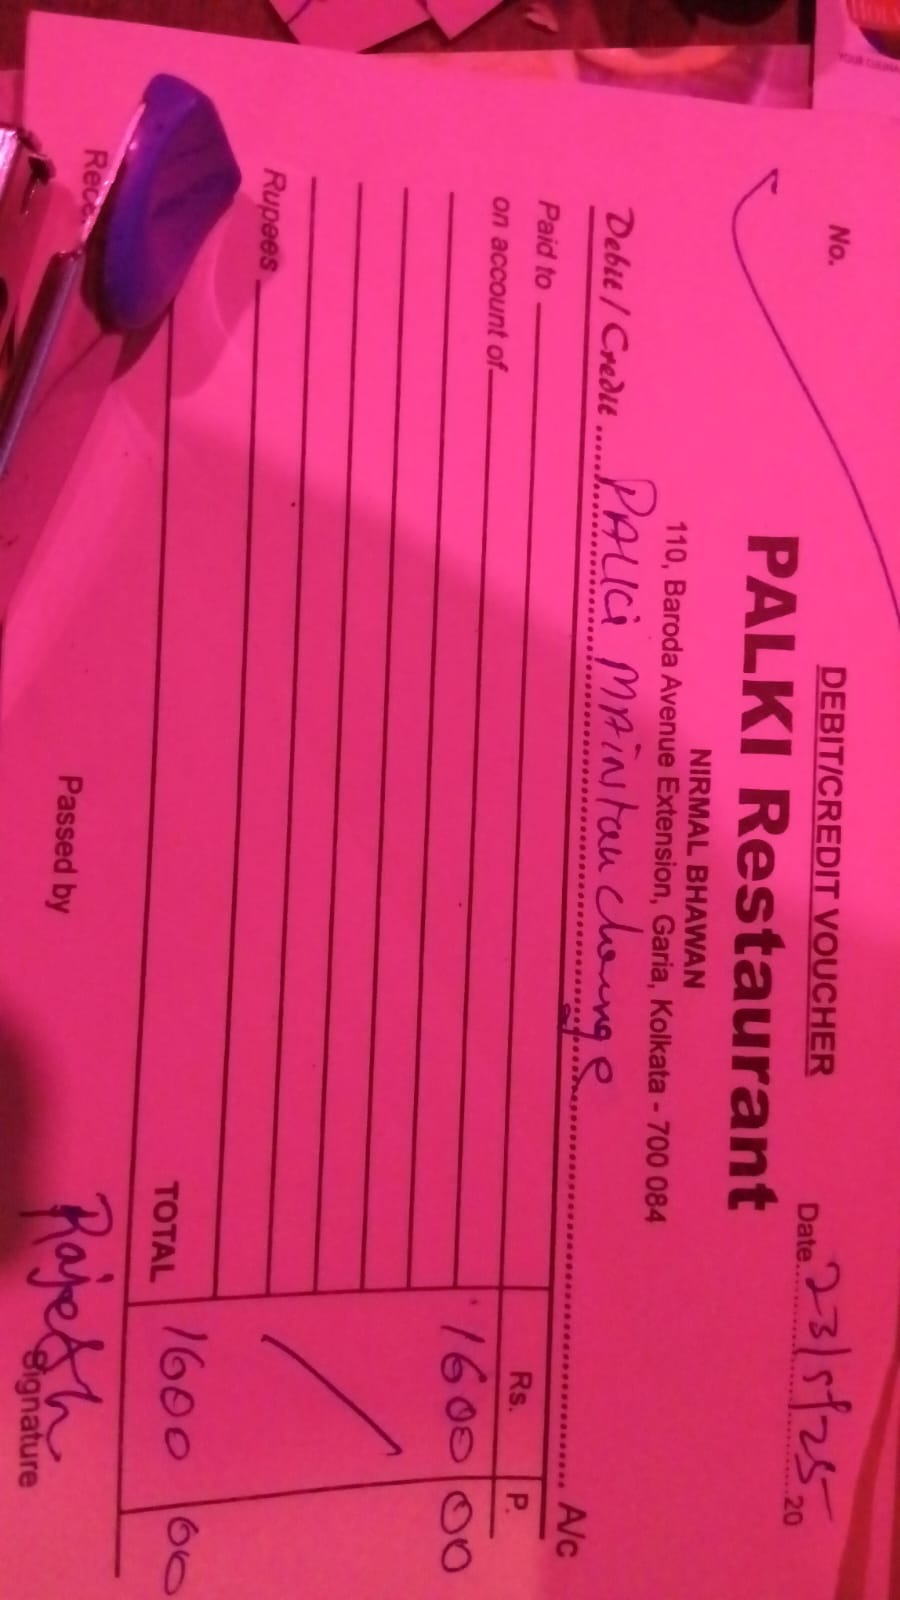 DEBIT/CREDIT VOUCHER
No.
Date 23/5/25 20
PALKI Restaurant
NIRMAL BHAWAN
110, Baroda Avenue Extension, Garia, Kolkata - 700 084
Debit / Credit PALKi MAintan charge A/c
Paid to
Rs. P.
on account of
1600 00
Rupees
TOTAL 1600 00
Passed by
Rajesh
Signature